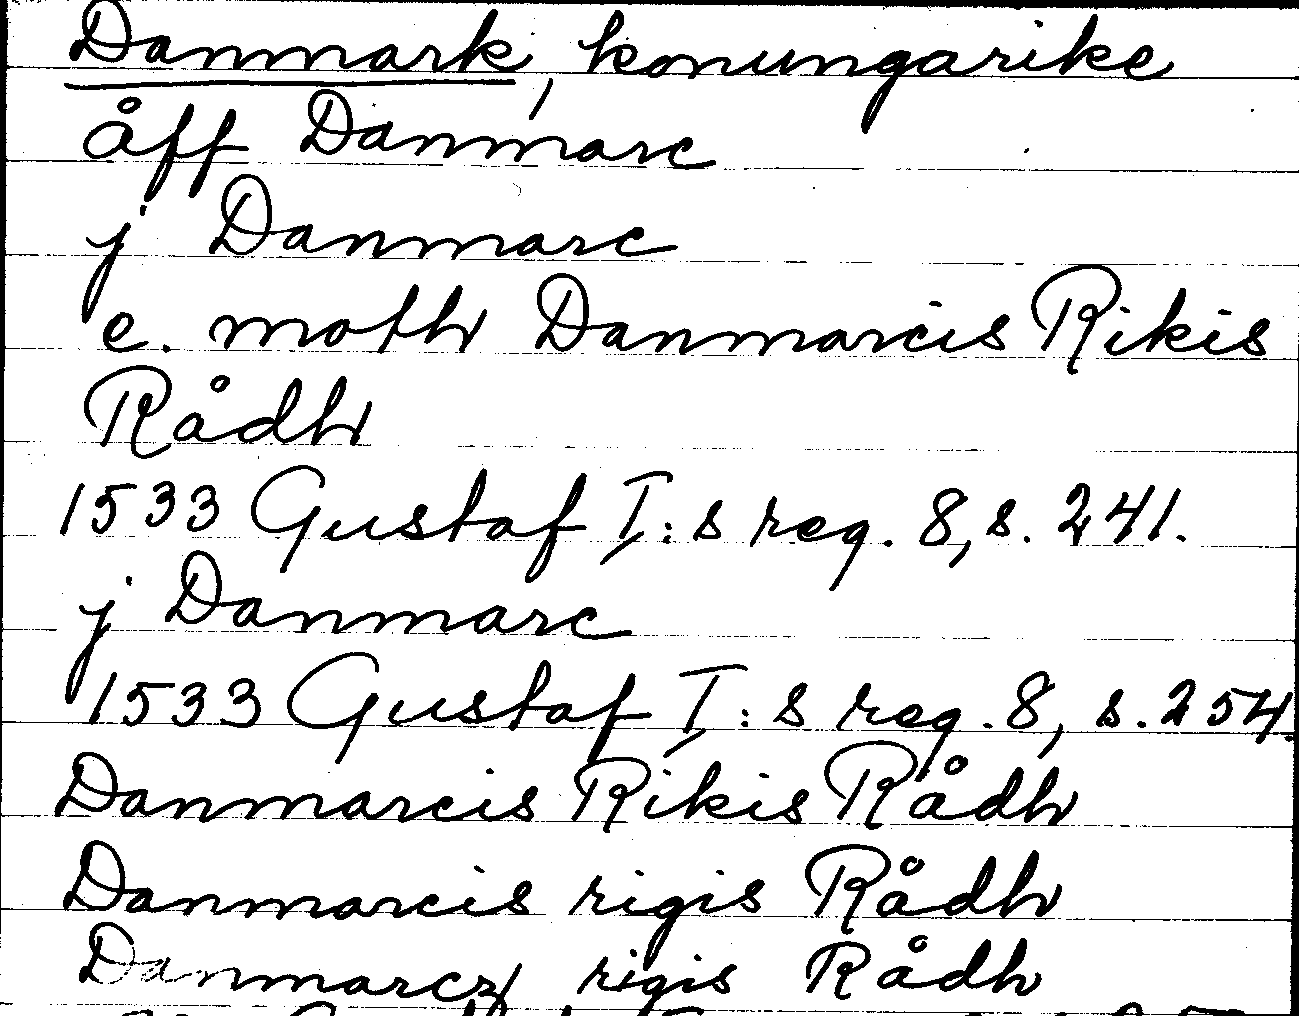 Danmark, konungarike
åff Danmarc
j Danmarc
e. moth Danmarcis Rikis
Rådh
1533 Gustaf I:s reg. 8, s. 241.
j Danmarc
1533 Gustaf I:s reg. 8, s. 254.
Danmarcis Rikis Rådh
Danmarcis rigis Rådh
Danmarcz rigis Rådh